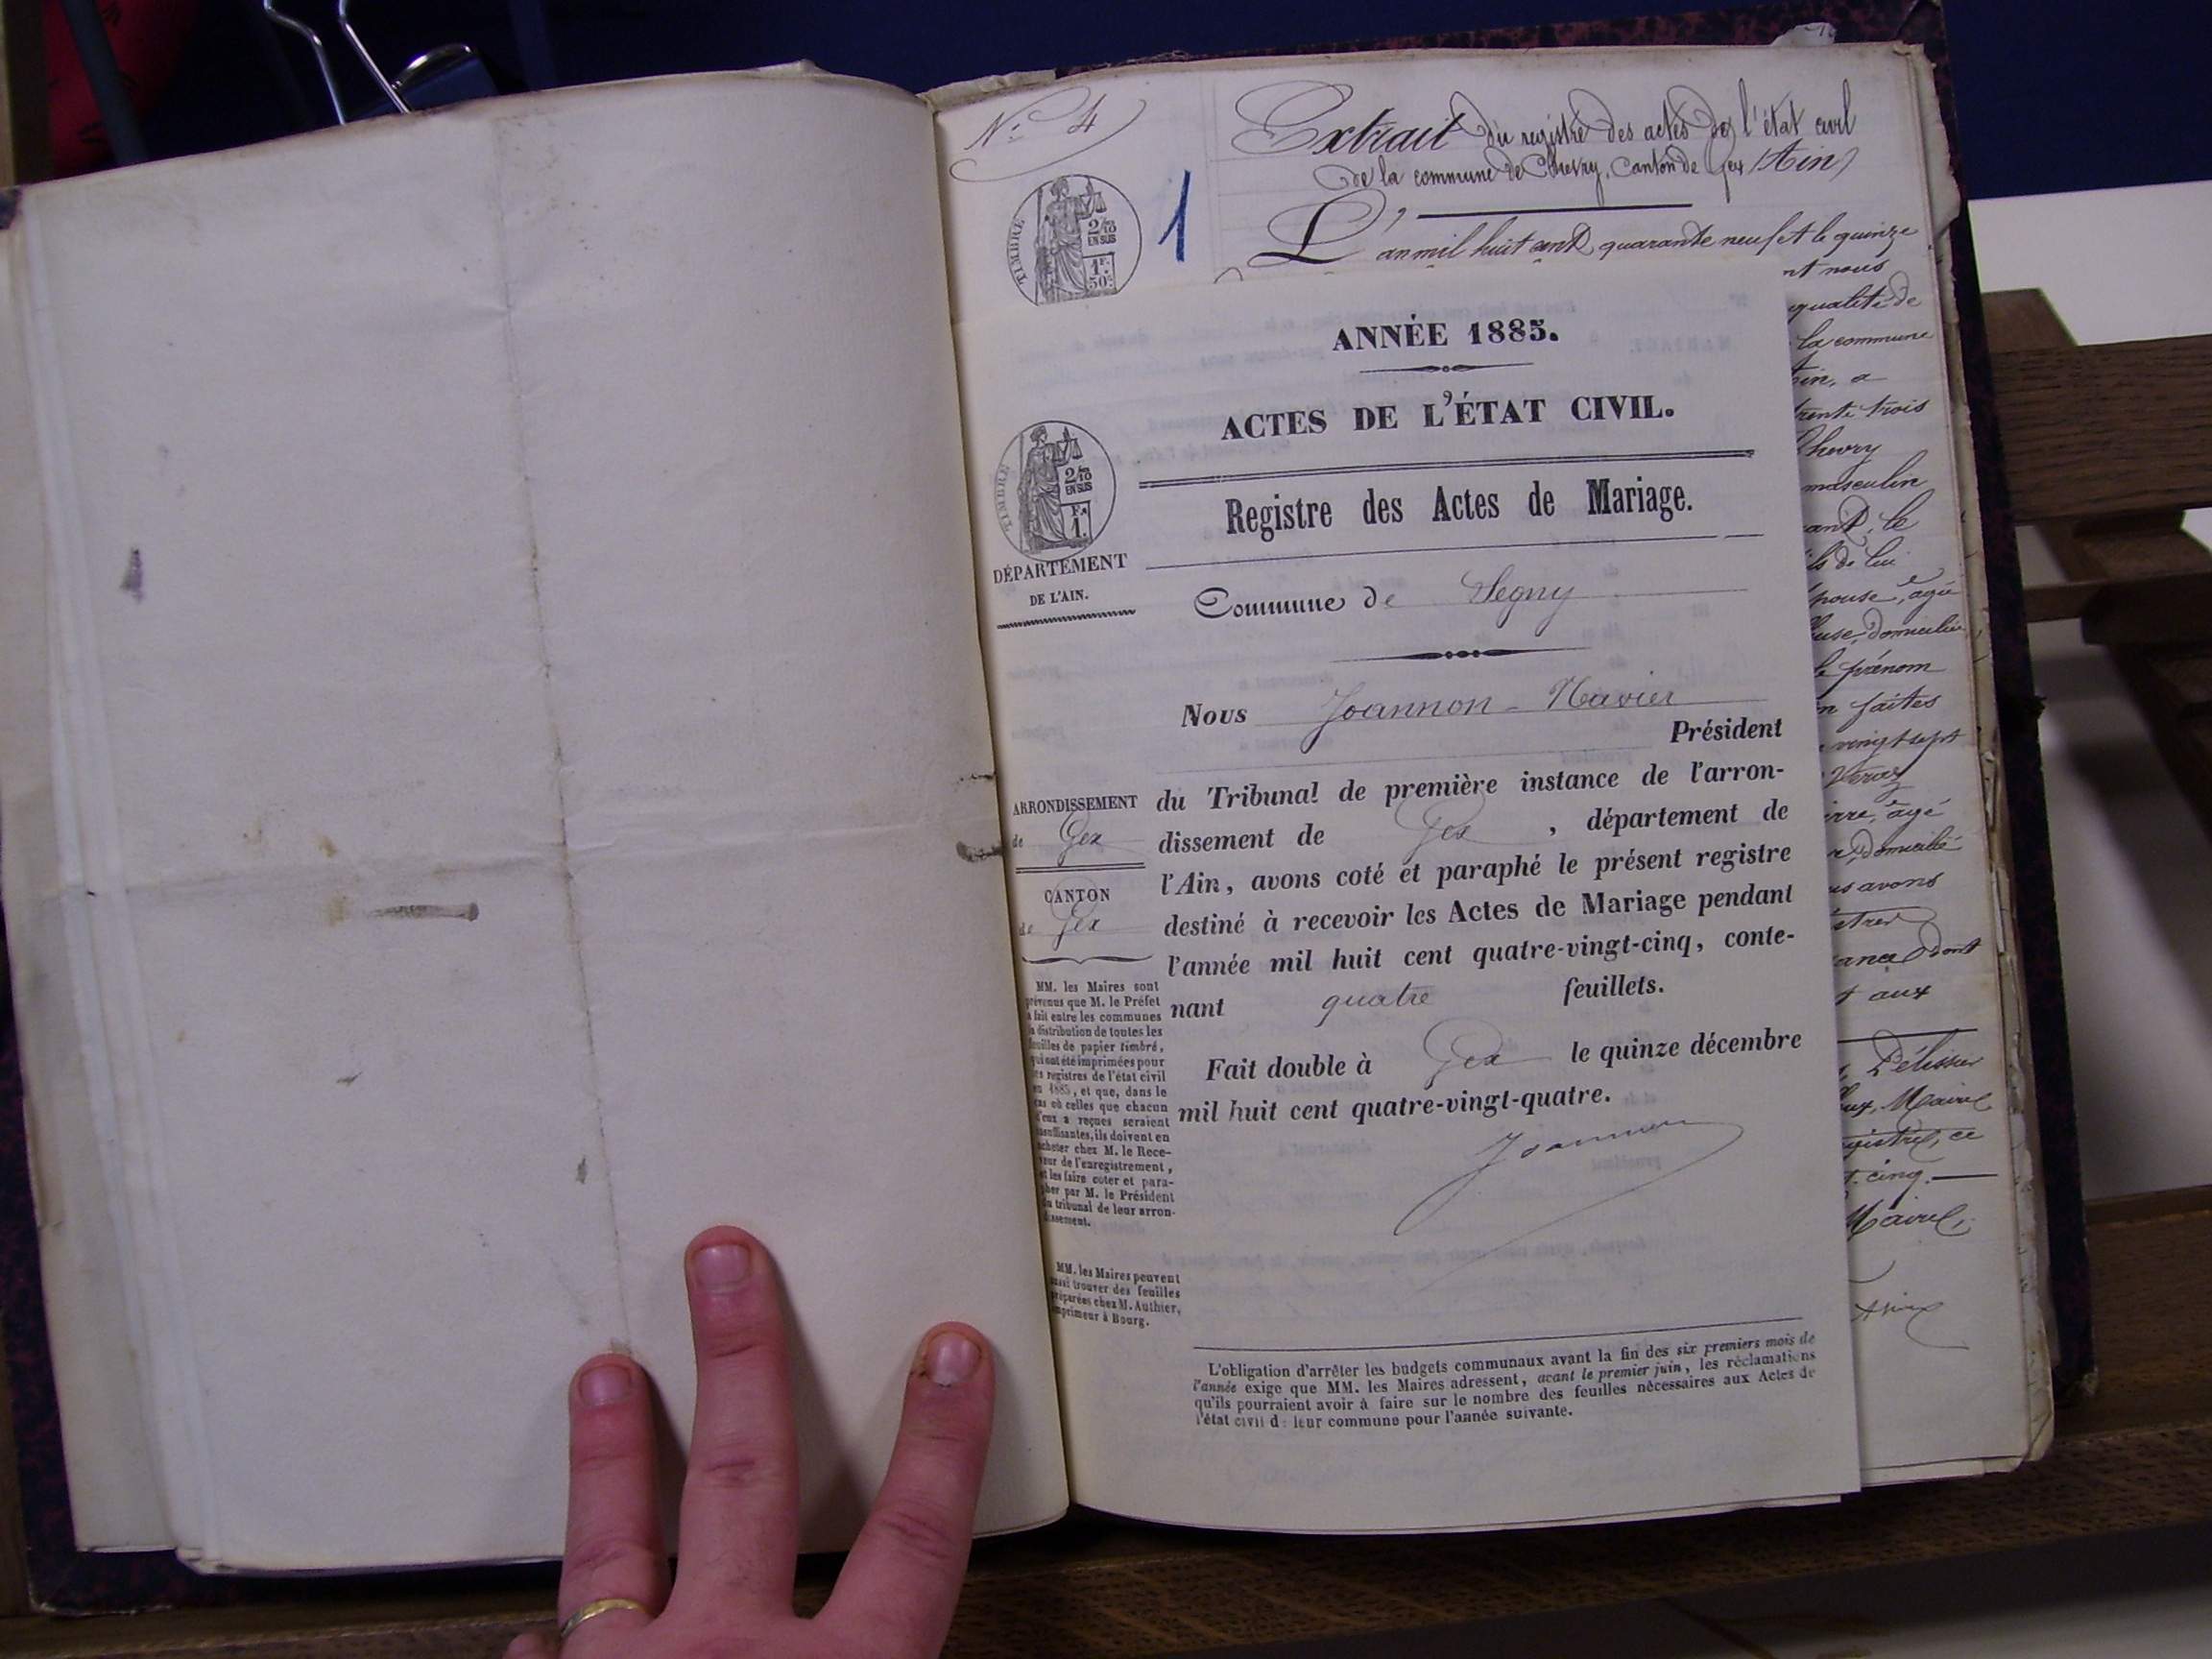 N° 4
1
Extrait du registre des actes de l'état civil
de la commune de Chevry, Canton de Gex (Ain)
L'an mil huit cent quarante neuf et le quinze
nt nous
qualité de
la commune
Ain, a
trente trois
Chevry
masculin
ant, le
ls de lui
pouse, âgé
use, domicilié
le prénom
n faites
vingt sept
Veraz
ierre, âgé
r, domicilié
us avons
dont
t aux
Pélissier
ux, Maire
gistre, ce
t-cinq.
Maire,
TIMBRE
2/10
EN SUS
1F.
50c
ANNÉE 1885.
ACTES DE L'ÉTAT CIVIL.
TIMBRE
2/10
EN SUS
Fr.
1.
Registre des Actes de Mariage.
DÉPARTEMENT
DE L'AIN.
Commune de Segny
Nous Joannon - Xavier
Président
du Tribunal de première instance de l'arron-
dissement de Gex, département de
l'Ain, avons coté et paraphé le présent registre
destiné à recevoir les Actes de Mariage pendant
l'année mil huit cent quatre-vingt-cinq, conte-
nant quatre feuillets.
Fait double à Gex le quinze décembre
mil huit cent quatre-vingt-quatre.
Joannon
ARRONDISSEMENT
de Gex
CANTON
de Gex
MM. les Maires sont
prévenus que M. le Préfet
a fait entre les communes
la distribution de toutes les
feuilles de papier timbré,
qui ont été imprimées pour
les registres de l'état civil
en 1885, et que, dans le
cas où celles que chacun
d'eux a reçues seraient
insuffisantes, ils doivent en
acheter chez M. le Rece-
veur de l'enregistrement,
et les faire coter et para-
pher par M. le Président
du tribunal de leur arron-
dissement.
MM. les Maires peuvent
aussi trouver des feuilles
préparées chez M. Authier,
imprimeur à Bourg.
L'obligation d'arrêter les budgets communaux avant la fin des six premiers mois de
l'année exige que MM. les Maires adressent, avant le premier juin, les réclamations
qu'ils pourraient avoir à faire sur le nombre des feuilles nécessaires aux Actes de
l'état civil de leur commune pour l'année suivante.